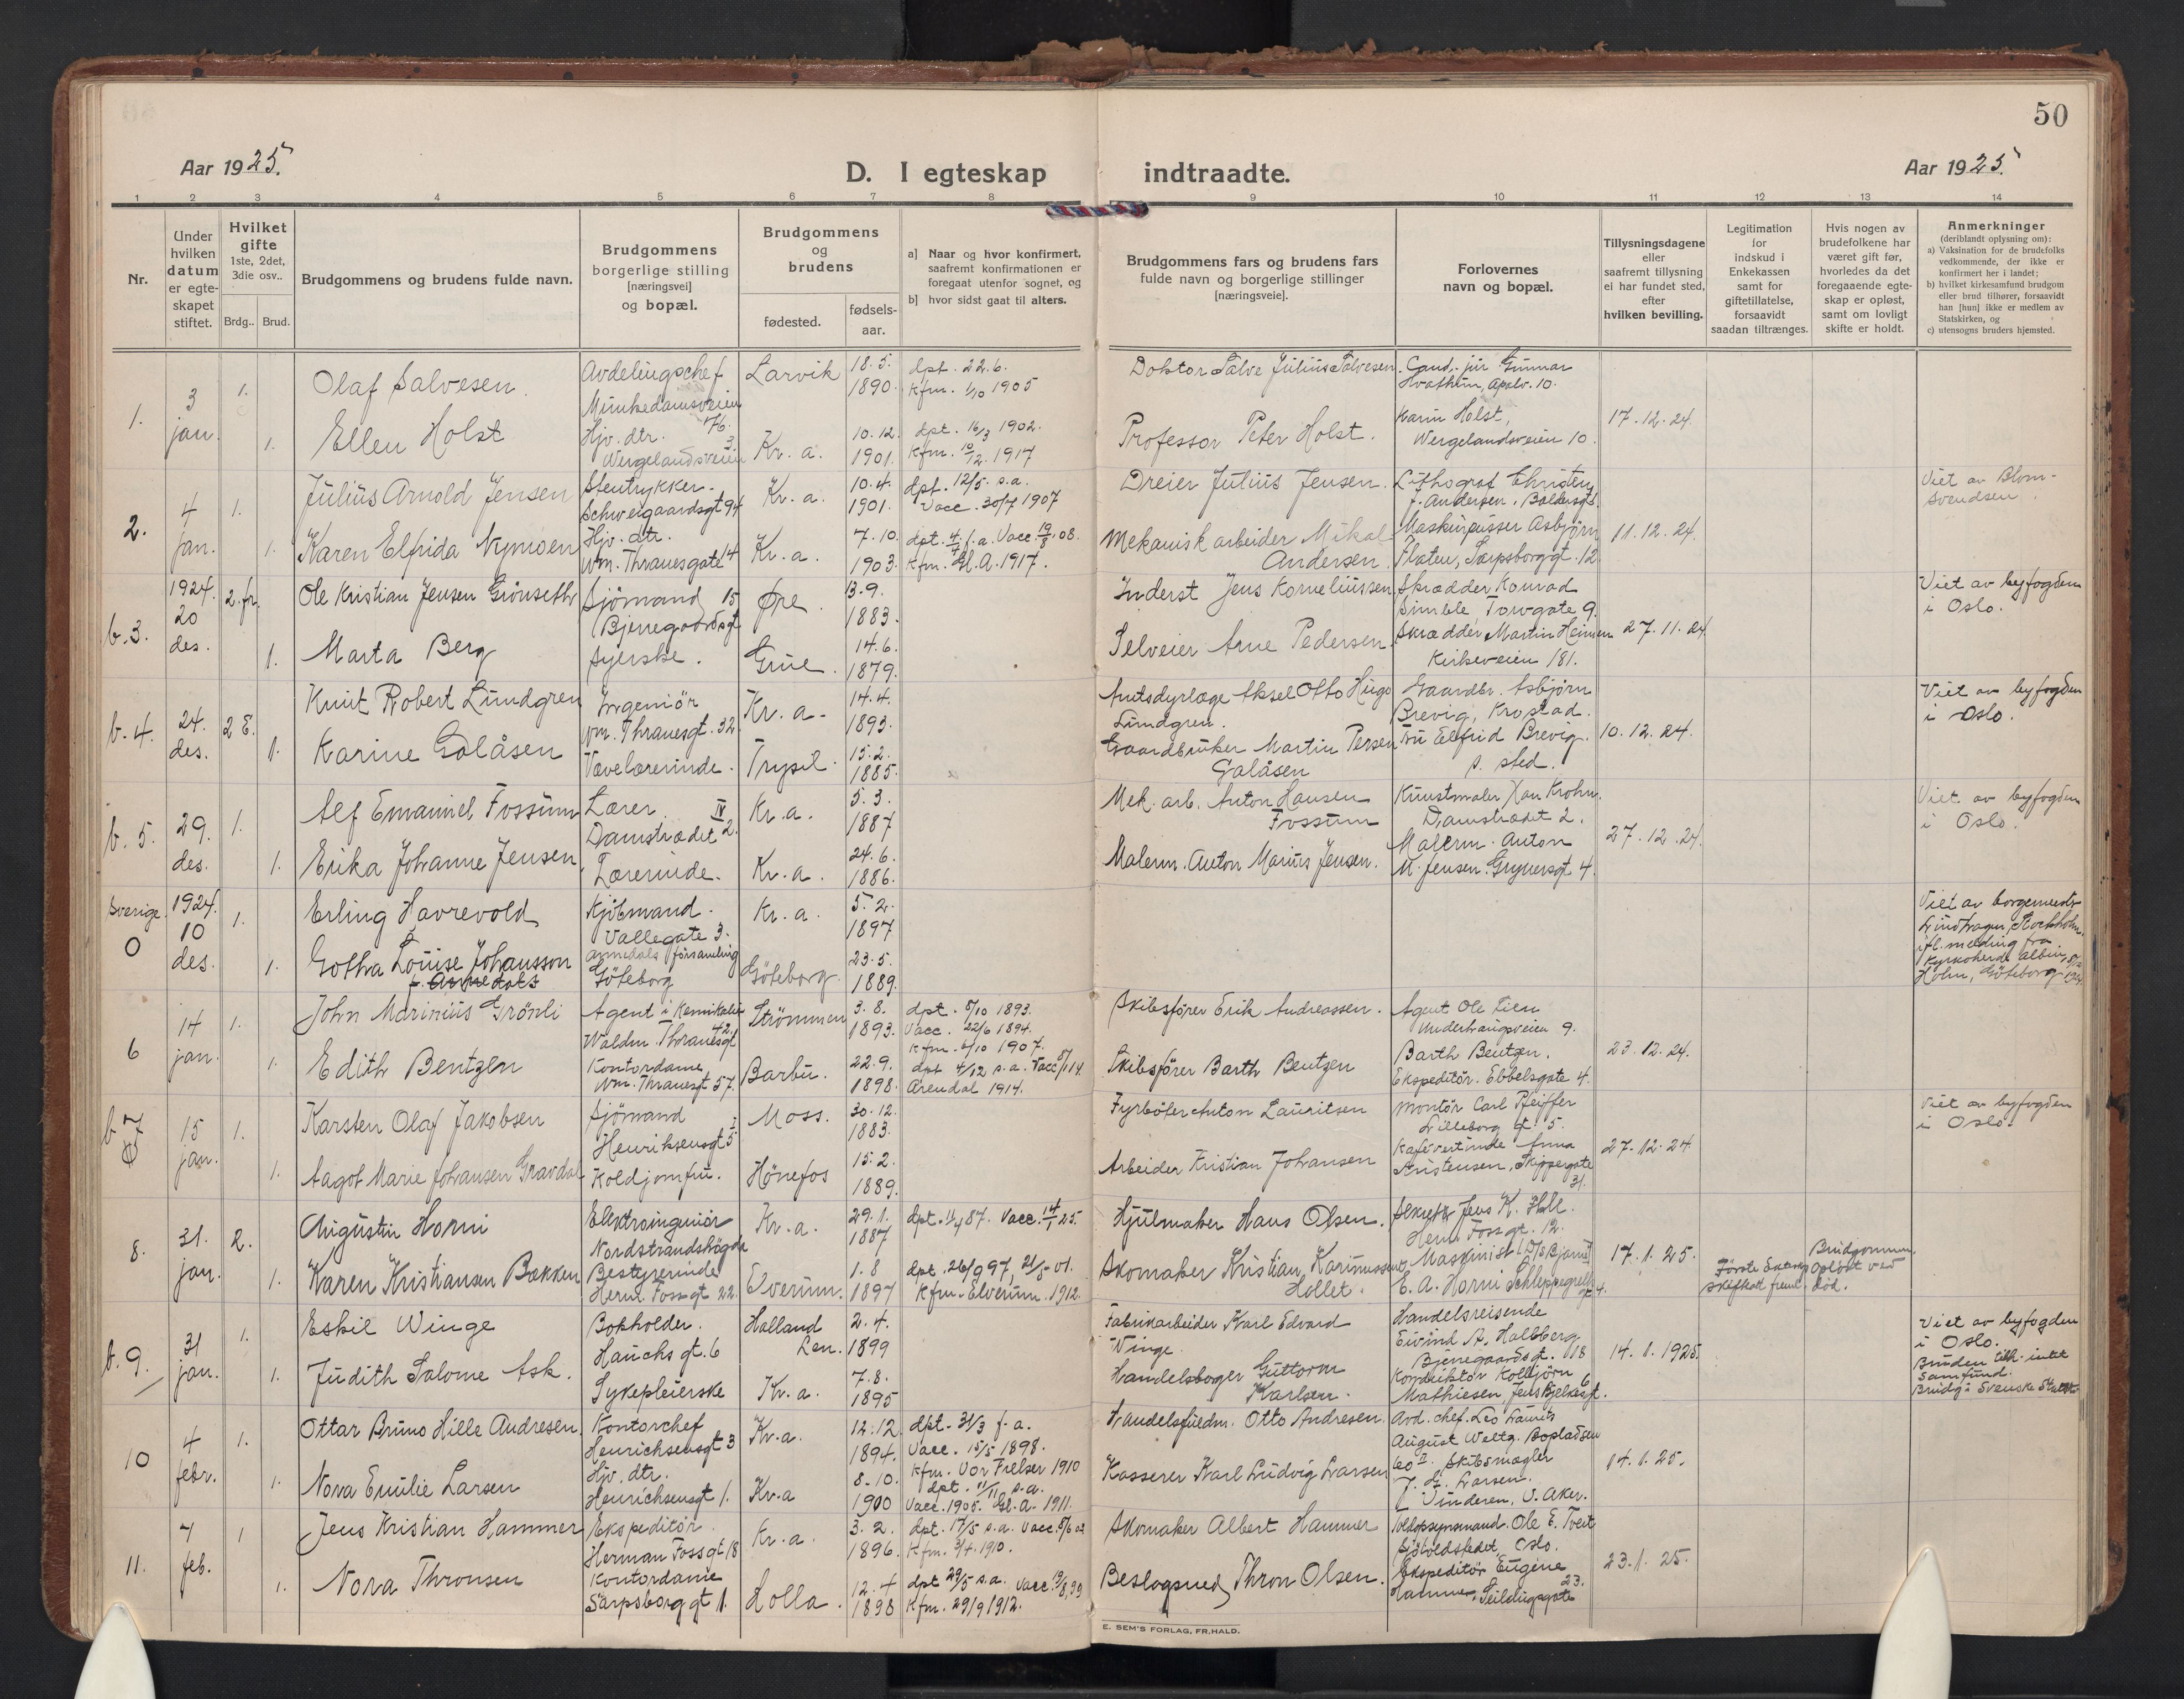 50
Aar 1925.
D. I egteskap indtraadte.
Aar 1925.
1 2 3 4 5 6 7 8 9 10 11 12 13 14
Nr.
Under hvilken datum er egte-skapet stiftet.
Hvilket gifte 1ste, 2det, 3die osv..
Brdg.. Brud.
Brudgommens og brudens fulde navn.
Brudgommens borgerlige stilling [næringsvei] og bopæl.
Brudgommens og brudens
fødested.
fødsels-aar.
a] Naar og hvor konfirmert, saafremt konfirmationen er foregaat utenfor sognet, og
b] hvor sidst gaat til alters.
Brudgommens fars og brudens fars fulde navn og borgerlige stillinger [næringsveie].
Forlovernes navn og bopæl.
Tillysningsdagene eller saafremt tillysning ei har fundet sted, efter hvilken bevilling.
Legitimation for indskud i Enkekassen samt for giftetillatelse, forsaavidt saadan tiltrænges.
Hvis nogen av brudefolkene har været gift før, hvorledes da det foregaaende egte-skap er opløst, samt om lovligt skifte er holdt.
Anmerkninger
(deriblandt oplysning om):
a) Vaksination for de brudefolks vedkommende, der ikke er konfirmert her i landet;
b) hvilket kirkesamfund brudgom eller brud tilhører, forsaavidt han [hun] ikke er medlem av Statskirken, og
c) utensogns bruders hjemsted.
1. 3 jan. 1. Olaf Salvesen. Avdelingschef Munkedamsveien 76. Larvik 18.5. 1890. dpt. 22.6. Kfm. 1/10 1905 Doktor Salve Julius Salvesen. Cand. jur Gunnar
1. Ellen Holst Hjv. dtr. Wergelandsveien 3 Kr. a. 10.12. 1901. dpt. 16/3 1902. Kfm. 10/12. 1917 Professor Peter Holst. Karin Holst, Wergelandsveien 10. 17.12.24.
2. 4 jan. 1. Julius Arnold Jensen Stentrykker. Schweigaardsgt 94 Kr. a. 10.4. 1901. dpt. 12/5. s.a. Vacc. 30/7 1907 Dreier Julius Jensen. Lithograf Christen J. Andersen, Viet av Blom-Svendsen.
1. Karen Elfrida Nymoen Hjv. dtr. Wm. Thranesgate 14 Kr. a. 7.10. 1903. Kfm. Gl. A. 1917. Mekanisk arbeider Mikal Andersen. Maskinpusser Asbjørn Platen, Sarpsborggt. 12. 11.12.24.
b. 3. 1924. 20 des. 2. fr. Ole Kristian Jensen Grønseth Sjömand Bjerregaardsgt 15 Øre. 13.9. 1883. Inderst Jens Korneliussen Skrædder Konrad Simble Torvgate 9. Viet av byfogden i Oslo.
1. Marta Berg Syerske. Grue. 14.6. 1879. Selveier Arne Pedersen. Skrædder Martin Kirkeveien 181. 27.11.24.
b. 4. 24. des. 2 E. Knut Robert Lundgren Ingeniör Wm. Thranesgt. 32 Kr. a. 14.4. 1893. Amtsdyrlæge Aksel Otto Hugo Lundgren. Gaardbr. Asbjörn Brevig, Krostad. Viet av byfogden i Oslo.
1. Karine Galåsen Vævelærerinde. Trysil. 15.2. 1885. Gaardbruker Martin Persen Galåsen Fru Elfrid Brevig. s. sted. 10.12.24.
b. 5. 29. des. 1. Alf Emanuel Fossum Lærer Damstrædet 2. IV Kr. a. 5.3. 1887 Mek. arb. Anton Hansen Fossum Kunstmaler Xan Krohn. Damstrædet 2. Viet av byfogden i Oslo.
1. Erika Johanne Jensen Lærerinde. Kr. a. 24.6. 1886. Malerm. Anton Marius Jensen. Malerm. Anton M. Jensen. Grynersgt 4. 27.12.24.
Sverige. 0 1924. 10 des. 1. Erling Havrevold Kjöbmand. Vallegate 3. Kr. a. 5.2. 1897 Viet av borgemester Lindhagen, Stockholm, ifl. melding fra Kyrkoherde Albin Holm, Göteborg
1. Gotha Louise Johansson Annedals församling Göteborg Göteborg 23.5. 1889.
6 14 jan. 1. John Marinius Grönli Agent i Kemikalier Waldm. Thranesgt 42 Strömmen 3.8. 1893. dpt. 8/10 1893. Vacc. 22/6 1894. Kfm. 6/10 1907. Skibsförer Erik Andreassen. Agent Ole Lien Underhaugsveien 9.
1. Edith Bentzen Kontordame Wm. Thranesgt 57. Barbu. 22.9. 1898. dpt 4/12 s.a. Arendal 1914. Skibsförer Barth Bentzen Barth Bentzen. Ekspeditör. Ebbelsgate 4. 23.12.24.
b 7 15 jan. 1. Karsten Olaf Jakobsen Sjömand Henriksensgt 5 Moss. 30.12. 1883. Fyrböter Anton Lauritsen Montör Carl Pfeiffer Lilleborg gt. 5. Viet av byfogden i Oslo.
1. Aagot Marie Johansen Gravdal Koldjomfru. Hönefos 15.2. 1889. Arbeider Kristian Johansen Kafévertinde Anna Kristensen, Skippergate 31. 27.12.24
8. 31. jan. 2. Augustin Horni Elektroingeniör Nordstrandshögda Kr. a. 29.1. 1887 dpt. 11/4 87. Vacc. 14/1 25. Hjulmaker Hans Olsen. Jens K. Herm. Fossgt. 12.
1. Karen Kristiansen Bakken Bestyrerinde Herm. Fossgt 22. Elverum. 1.8 1897 dpt. 26/9 97, Kfm. Elverum. 1912. Skomaker Kristian Karinussen Hollet. Maskinist E. A. Horni Schleppegrellsgt 4. 17.1.25. Brudgommen oplöst ved död.
b. 9. 31 jan. 1. Eskil Winge Bokholder. Hauchs gt. 6 Halland Len. 2.4. 1899 Fabrikarbeider Karl Edvard Winge Handelsreisende Eivind A. Hallberg Bjerregaardsgt. 18 14.1.1925. Viet av byfogden i Oslo. Bruden tilh. intet samfund.
1. Judith Salome Ask. Sykepleierske Kr. a. 7.8. 1895 Handelsborger Guttorm Karlsen. Konduktör Kolbjörn Mathiesen, Jens Bjelkesgt. 6
10 4 febr. 1. Ottar Bruno Hille Andresen. Kontorchef Henrichsensgt 3 Kr. a. 12.12. 1894. dpt. 31/3 f. a. Vacc. 15/5 1898. Kfm. Vor Frelser 1910 Handelsfuldm. Otto Andresen. Avd. chef. Leo Laurits August Weltz.
1. Nora Emilie Larsen Hjv. dtr. Henrichsensgt 1. Kr. a 8.10. 1900 dpt. 11/11 s.a. Vacc. 1905. Gl. A. 1911. Kasserer Karl Ludvig Larsen Skibsmægler Larsen. Vinderen, V. Aker. 14.1.25.
11. 7 feb. 1 Jens Kristian Hammer Ekspeditör Herman Fossgt 18 Kr. a. 3.2. 1896. dpt. 17/5 s.a. Kfm. 3/4. 1910. Skomaker Albert Hammer Toldopsynsmand. Ole E. Tveit Oslo.
1. Nora Thronsen Kontordame Sarpsborg gt 1. Lolla. 12.4 1898 dpt 29/5 s.a. Kfm. 29/9 1912. Beslagsmed Thron Olsen. Ekspeditör Eugene Hammer, Seildugsgate 23. 23.1.25.
E. SEM'S FORLAG, FR.HALD.